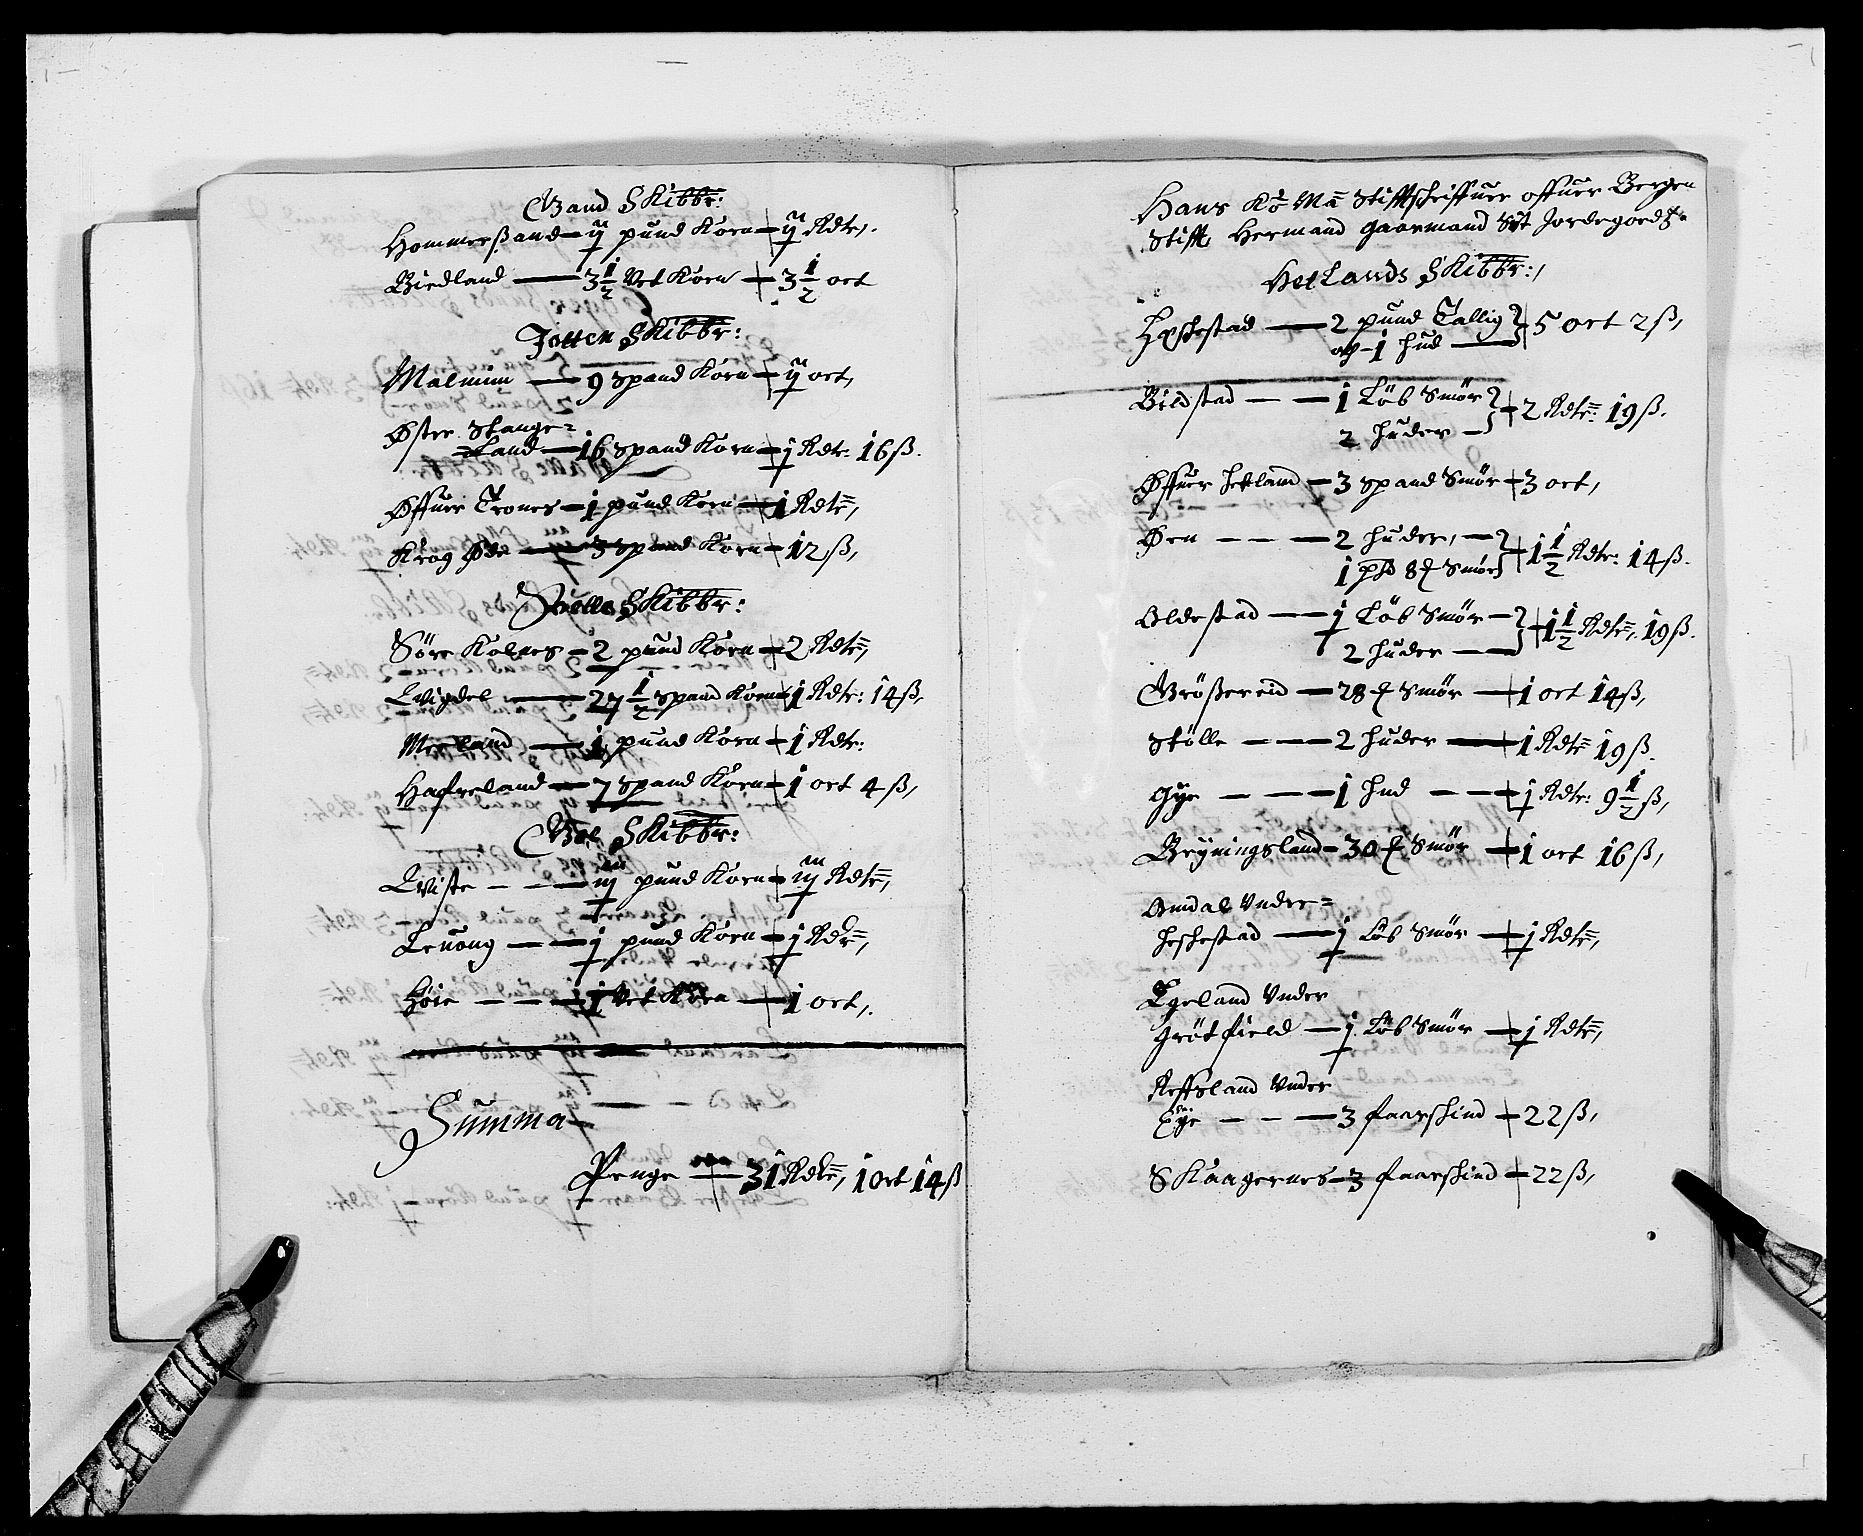 Gand Skibbr:
Hommersand — ij pund Korn — ij Rdr,
Biedland — 3 1/2 Vet Korn — 3 1/2 ort
Jatten Skibbr:
Malmim — 9 Spand Korn — ij ort,
Øster Stange=
=Land — 16 Spand Korn — j Rdr: 16 ß.
Øffuer Trones — 1 pund Korn — 1 Rdr,
Krog Øde — 3 Spand Korn — 12 ß,
Skibbr:
Söre Kolnes — 2 pund Korn — 2 Rdr,
Wigdel — 27 1/2 Spand Korn — 1 Rdr: 14 ß,
Meeland — 1 pund Korn — 1 Rdr:
Hafreland — 7 Spand Korn — 1 ort 4 ß,
Skibbr:
Wiste — iij pund Korn — iij Rdr,
Leuong — j pund Korn — j Rdr,
Höie — 1 Vet Korn — 1 ort,
Summa
Penge — 31 Rdr, 1 ort 14 ß
Hans Kö Ma Stiffschriffuer offuer Bergen
Stifft, Hermand Gaarmand Sÿt Jordegoedtz
Hetlands Skibbr:,
Hæschestad — 2 pund Tallig
och 1 hud — 5 ort 2 ß,
Bildstad — 1 Löb Smör
2 huder — 2 Rdr: 19 ß.
Øffuer hetland — 3 Spand Smör — 3 ort,
Øen — 2 huder,
1 pd 8 £ Smör — 1 1/2 Rdr: 14 ß.
Oldestad — j Löb Smör
2 huder — 1 1/2 Rdr, 19 ß.
Grösereid — 28 £ Smör — 1 ort 14 ß,
Stölle — 2 huder — 1 Rdr 19 ß.
Gye — 1 hud — j Rdr: 9 1/2 ß,
Bryningsland — 30 £ Smör — 1 ort 16 ß,
Omdal Vnder=
heschestad — j Löb Smör — j Rdr,
Egeland Vnder
Grötfield — j Löb Smör — j Rdr,
Reffsland Vnder
Eye — 3 faarskind — 22 ß,
Skaagernes — 3 faarskind — 22 ß,